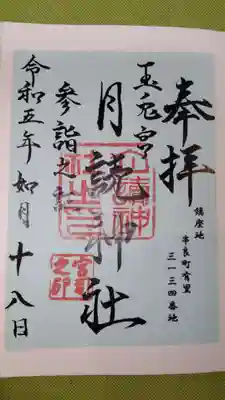 奉拝
鎮座地
串良町有里
三一三四番地
玉兎宮
月読神社
参詣之記
令和五年如月十八日
宮司之印